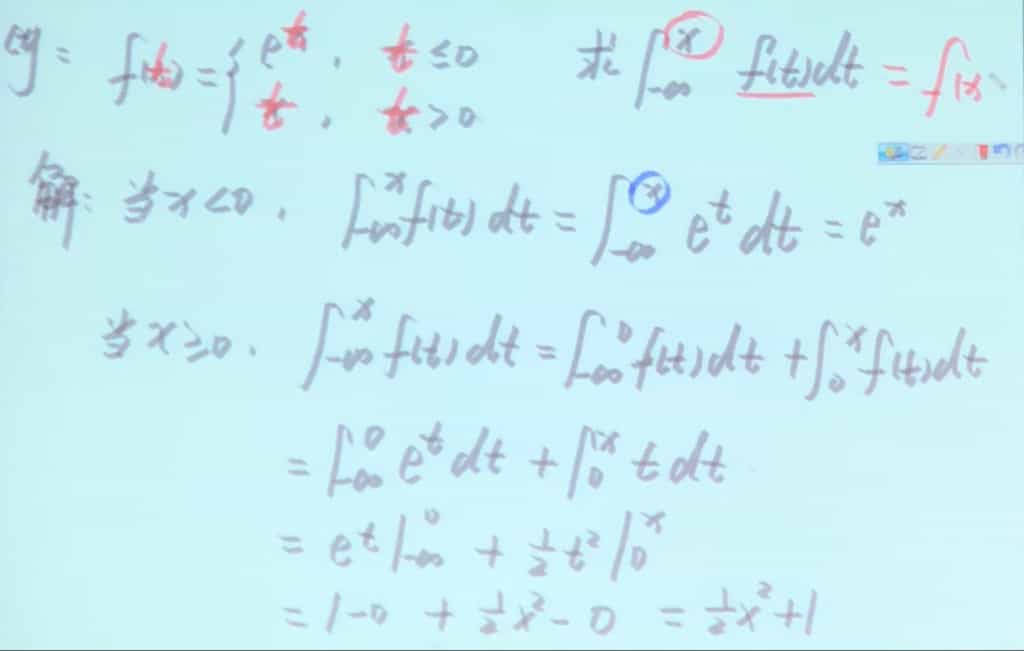 例: f(t) = { e^t, t ≤ 0 求 ∫_{-∞}^{x} f(t)dt = f(x
t, t > 0
解: 当 x < 0, ∫_{-∞}^{x} f(t) dt = ∫_{-∞}^{x} e^t dt = e^x
当 x ≥ 0, ∫_{-∞}^{x} f(t) dt = ∫_{-∞}^{0} f(t) dt + ∫_{0}^{x} f(t) dt
= ∫_{-∞}^{0} e^t dt + ∫_{0}^{x} t dt
= e^t |_{-∞}^{0} + 1/2 t^2 |_{0}^{x}
= 1 - 0 + 1/2 x^2 - 0 = 1/2 x^2 + 1